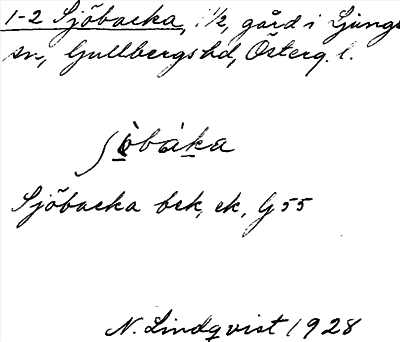 1-2 Sjöbacka, 1/2, gård i Ljungs
sn, Gullbergs hd, Österg. l.
ʃöbàka
Sjöbacka bek, ek, G 55
N. Lindqvist 1928